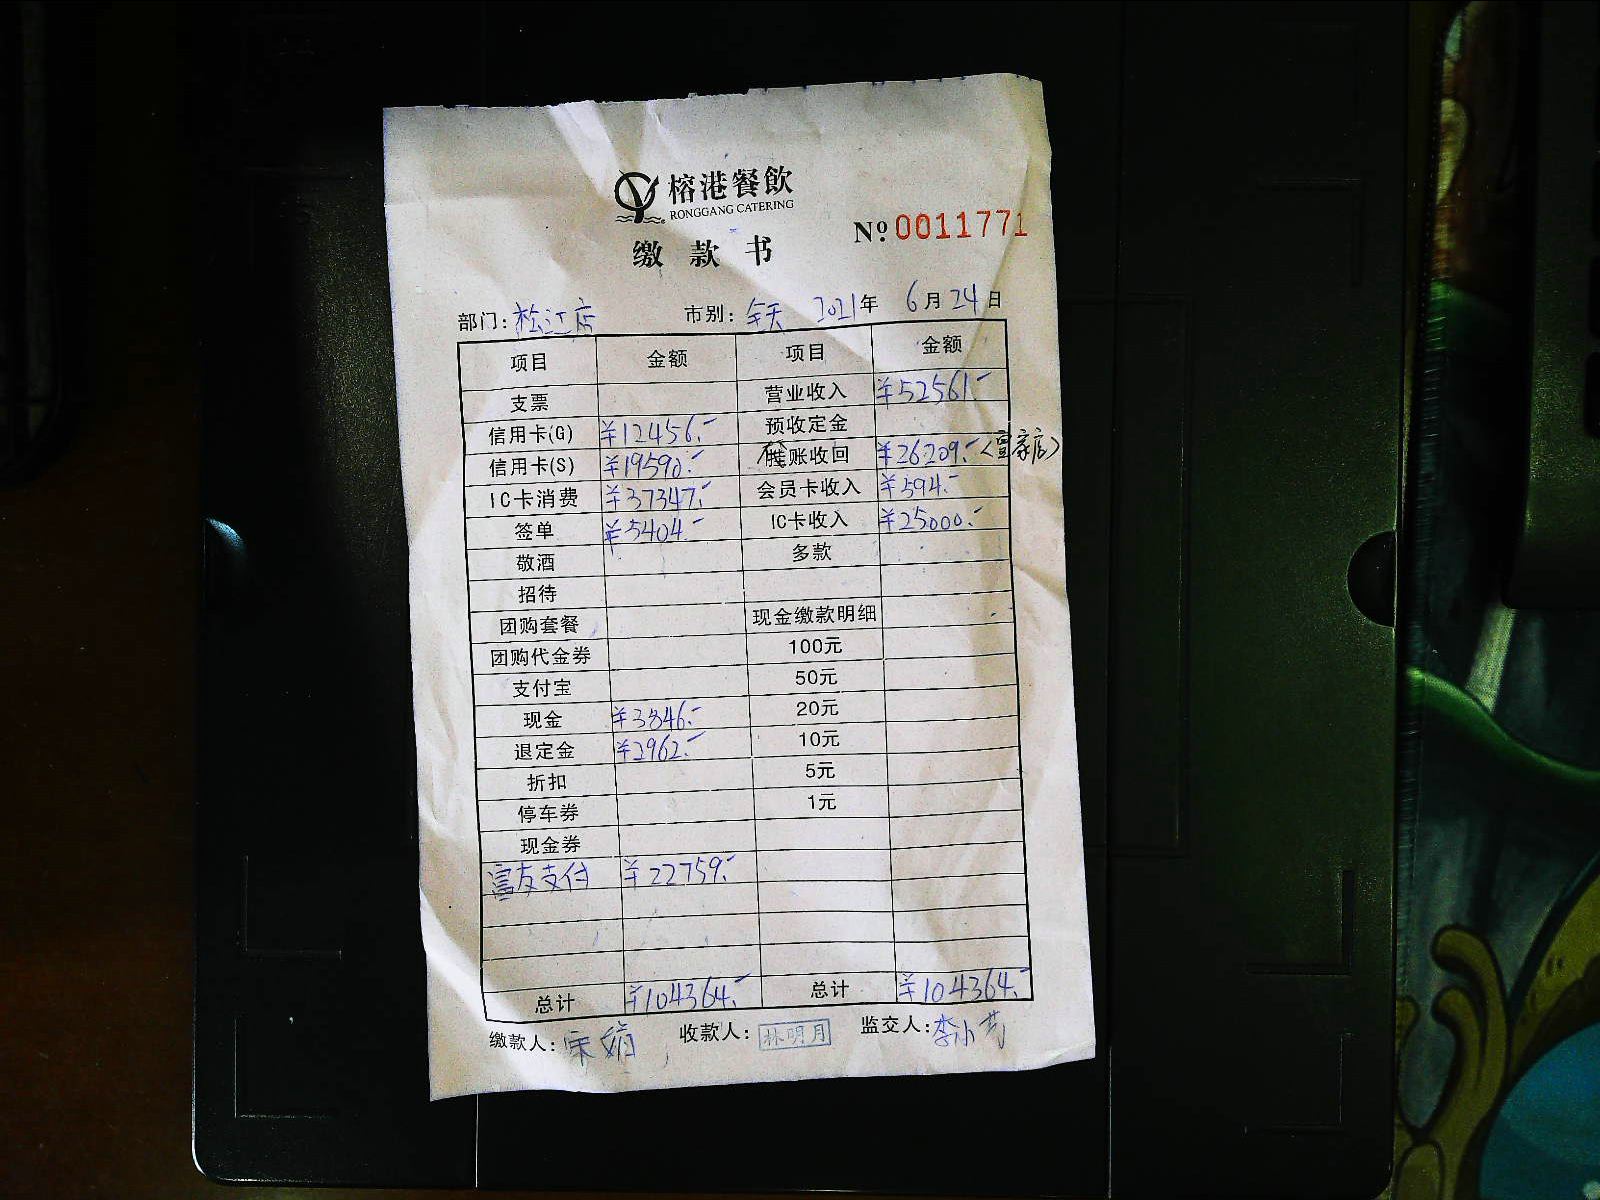 榕港餐飲
RONGGANG CATERING
缴款书 Nº 0011771
部门: 松江店 市别: 全天 2021年 6月24日
项目 金额 项目 金额
支票 营业收入 ¥52561.-
信用卡(G) ¥12456.- 预收定金
信用卡(S) ¥19590.- 账收回 ¥26209.- (宜家店)
IC卡消费 ¥37347.- 会员卡收入 ¥594.-
签单 ¥5404.- IC卡收入 ¥25000.-
敬酒 多款
招待
团购套餐 现金缴款明细
团购代金券 100元
支付宝 50元
现金 ¥3846.- 20元
退定金 ¥2962.- 10元
折扣 5元
停车券 1元
现金券
富友支付 ¥22759.-
总计 ¥104364.- 总计 ¥104364.-
缴款人: 宋娟 收款人: 林明月 监交人: 李小芳